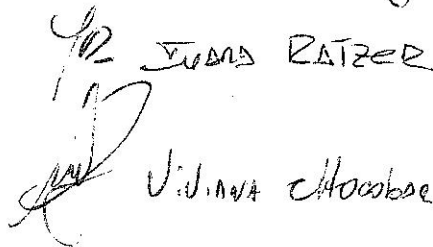 Ivana RATZER
Viviana Chocobar